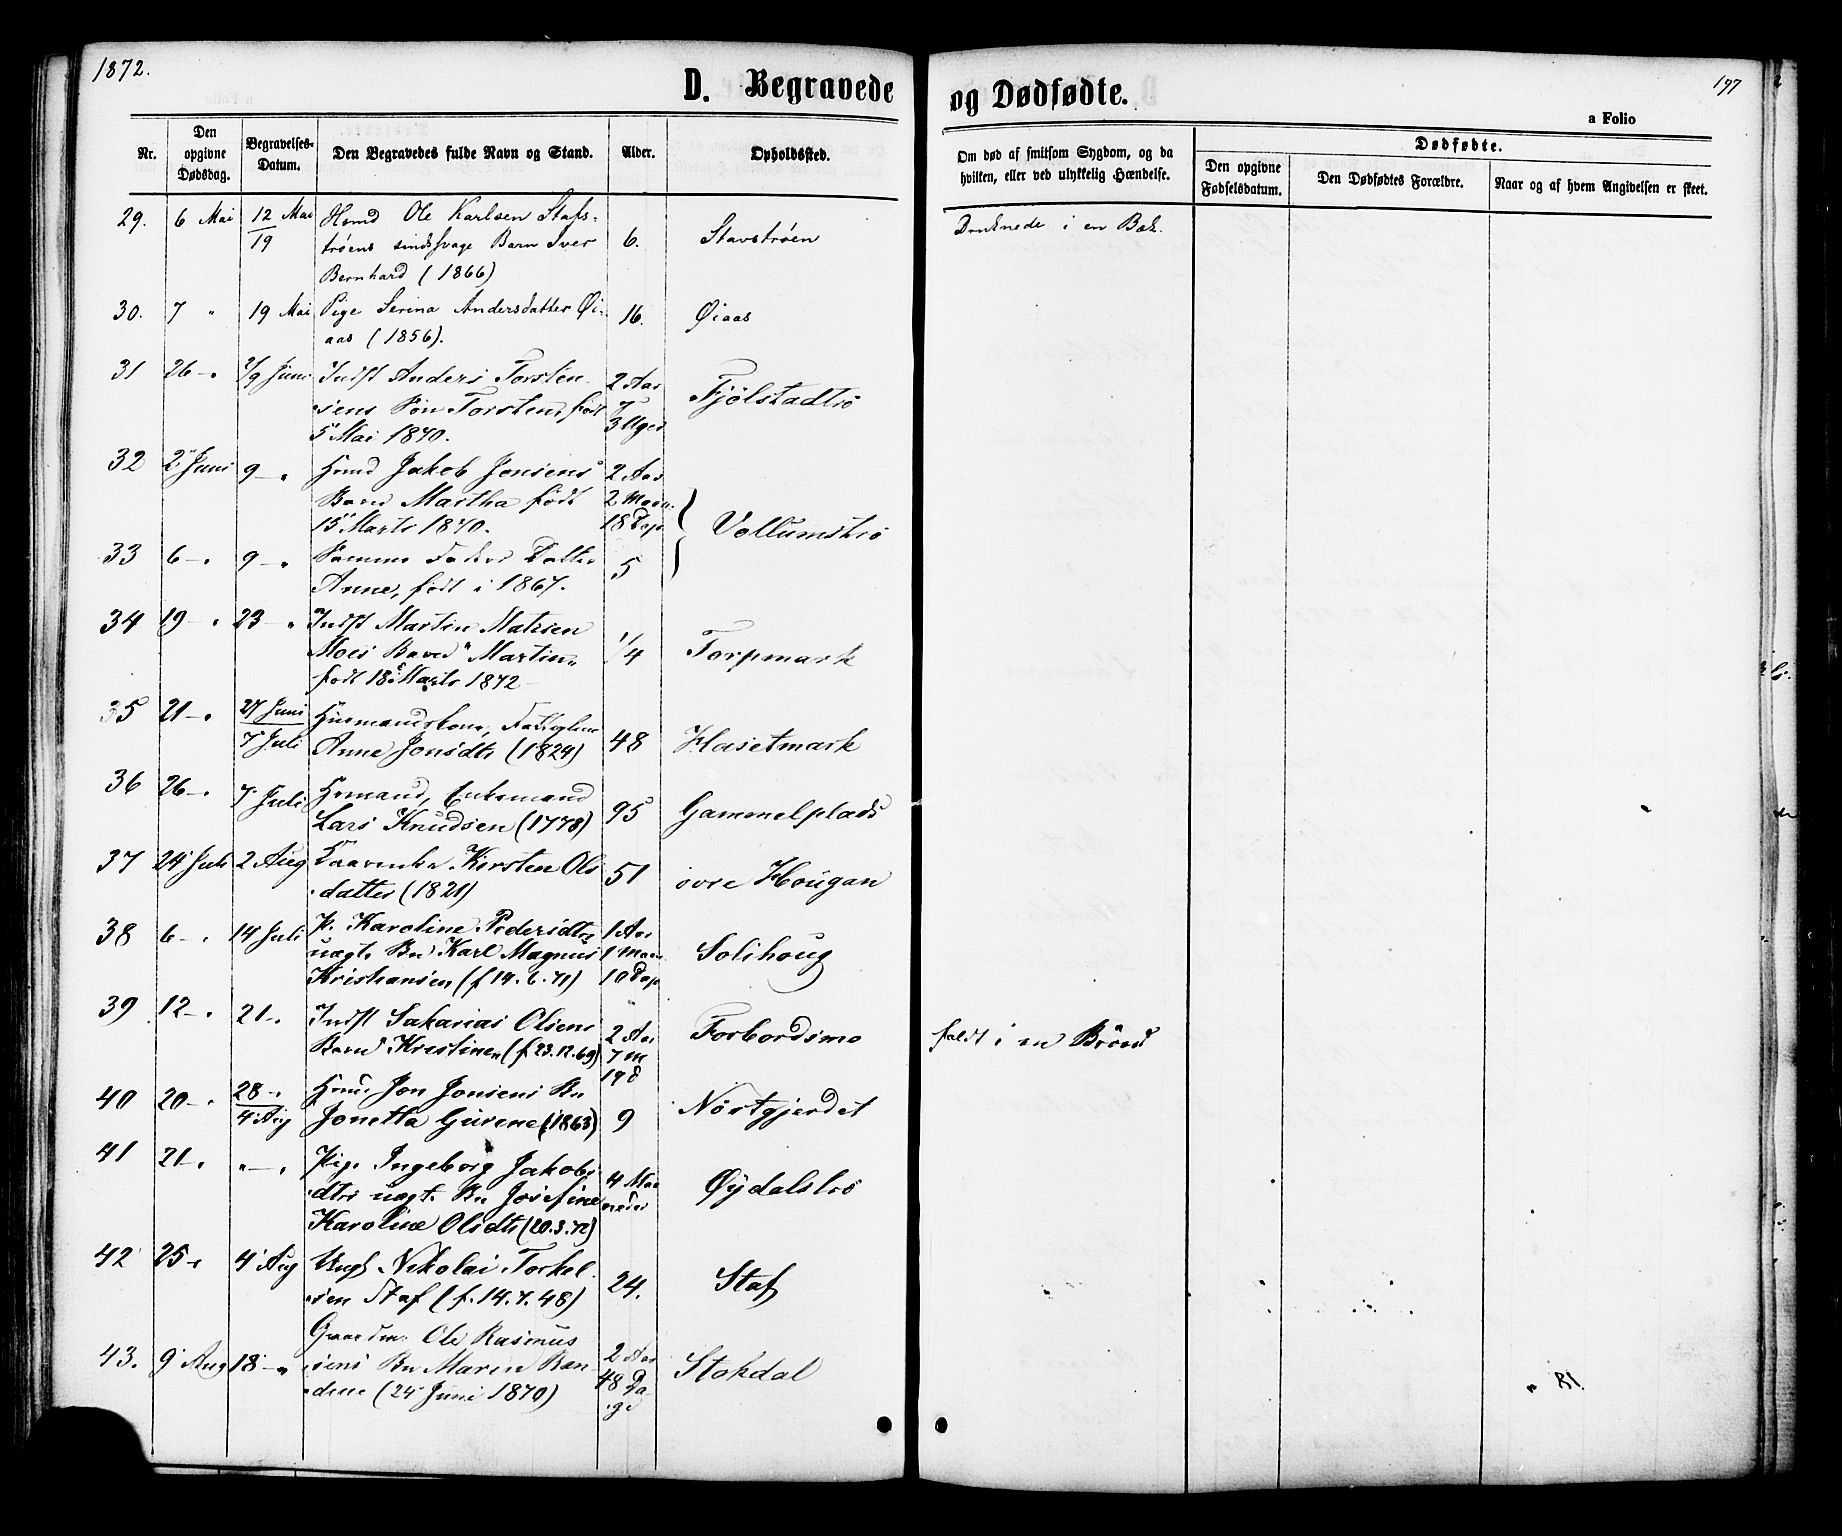 1872.
D. Begravede
og Dødfødte.
197
a Folio
Nr.
Den opgivne Dødsdag.
Begravelses-Datum.
Den Begravedes fulde Navn og Stand.
Alder.
Opholdssted.
Om død af smitsom Sygdom, og da hvilken, eller ved ulykkelig Hændelse.
Dødfødte.
Den opgivne Fødselsdatum.
Den Dødfødtes Forældre.
Naar og af hvem Angivelsen er skeet.
29. 6 Mai 12 Mai Hmd Ole Karlsen Stafs-
19 trøens sindssvage Barn Iver 6. Stavstrøen Druknede i en Bæk.
Bernhard (1866)
30. 7 " 19 Mai Pige Serina Andersdatter Øi- 16. Øiaas
aas (1856).
31 26 -" 2/9 Juni Indst Anders Torsten- 2 Aar
sens Søn Torsten, født 3 Uger Fjølstadtrø
5 Mai 1870.
32 2 Juni 9 -" Hmd Jakob Jonsens 2 Aar
Barn Martha født 2 Maan.
15 Marts 1870. 18 Dage Vollumstrø
33 6 -" 9 -" Samme Faders Datter
Anne, født i 1867. 5
34 19 -" 23 -" Indst Martin Matisen
Moes Barn "Martin" 1/4 Torpmark
født 18 Marts 1872
35 21 -" 27 Juni Husmandskone,
7 Juli Anne Jonsdtr (1824) 48 Hasetmark
36 26 -" 7 Juli Hsmand, Enkemand
Lars Knudsen (1778) 95 Gammelplads
37 24 Juli 2 Aug Kirsten Ols
datter (1821) 51 øvre Hougan
38 6 -" 14 Juli P. Karoline Pedersdtrs 1 Aar
uægt. Bn Karl Magnus 1 Maan Solihoug
Kristiansen (f 14.6.71) 18 Dage
39 12 -" 21 -" Indst Sakarias Olsens 2 Aar
Barn "Kristine" (f 23.12.69) 7 M Forbordsmo faldt i en Brønd
19 d
40 20 -" 28 -" Hmd Jon Jonsens Bn
4 Aug Jonetta Gurine (1863) 9 Nostgjerdet
41 21 -" " - " Pig. Ingeborg Jakobs
dtrs uægt. Bn Josefine 4 Maa
neder Øydalstrø
Karoline Olsdtr (20.3.72)
42 25 -" 4 Aug Ungk Nikolai Torkel
sen Staf (f. 14.7.48) 24. Staf
43. 9 Aug 18 -" Gaardm. Ole Rasmus
sens Bn Maren Ran- 2 Aar Stokdal
dine (24 Juni 1870) 48 Da-
ge